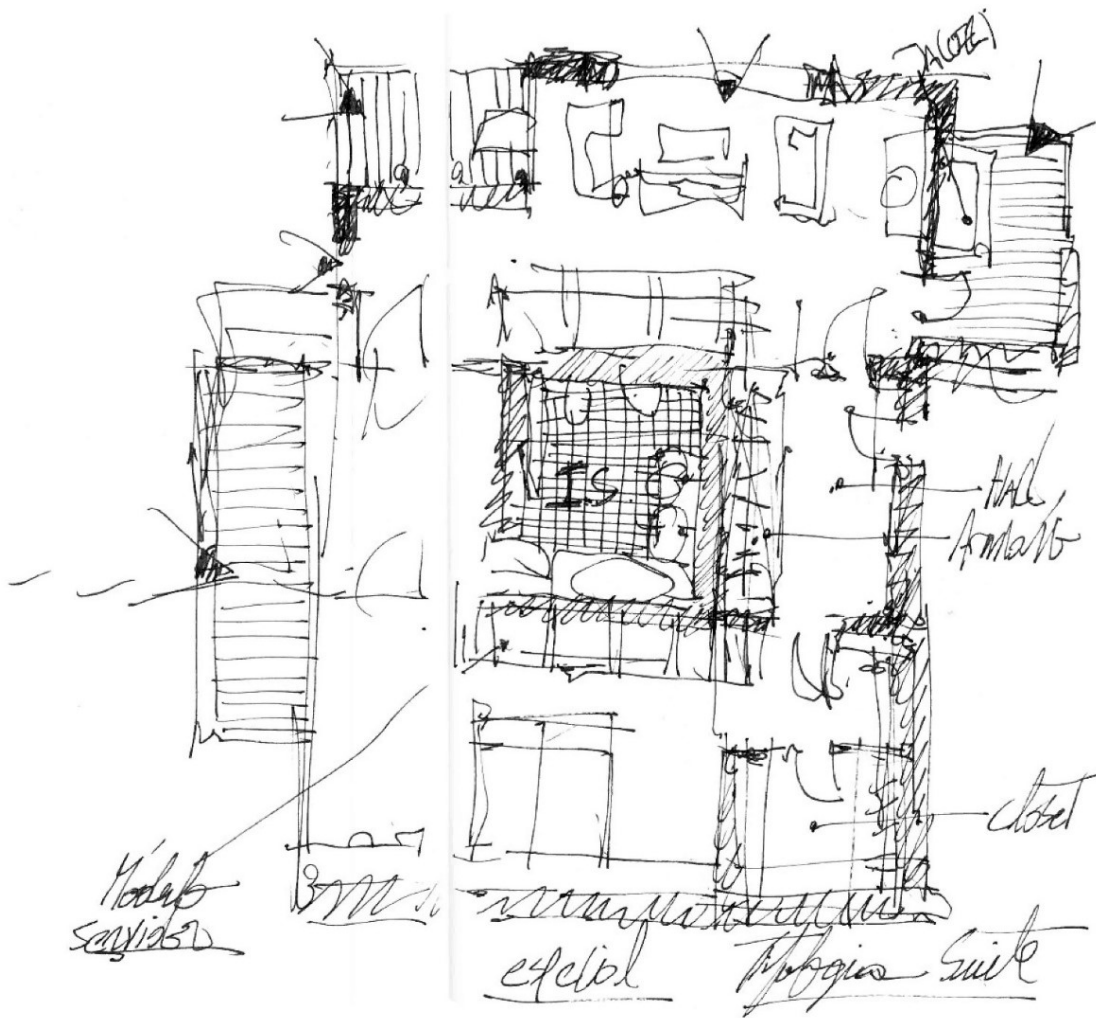 JACUZZI
I.S.
HALL
Armario
closet
Módulo
servidor
especial
Tipologia Suite